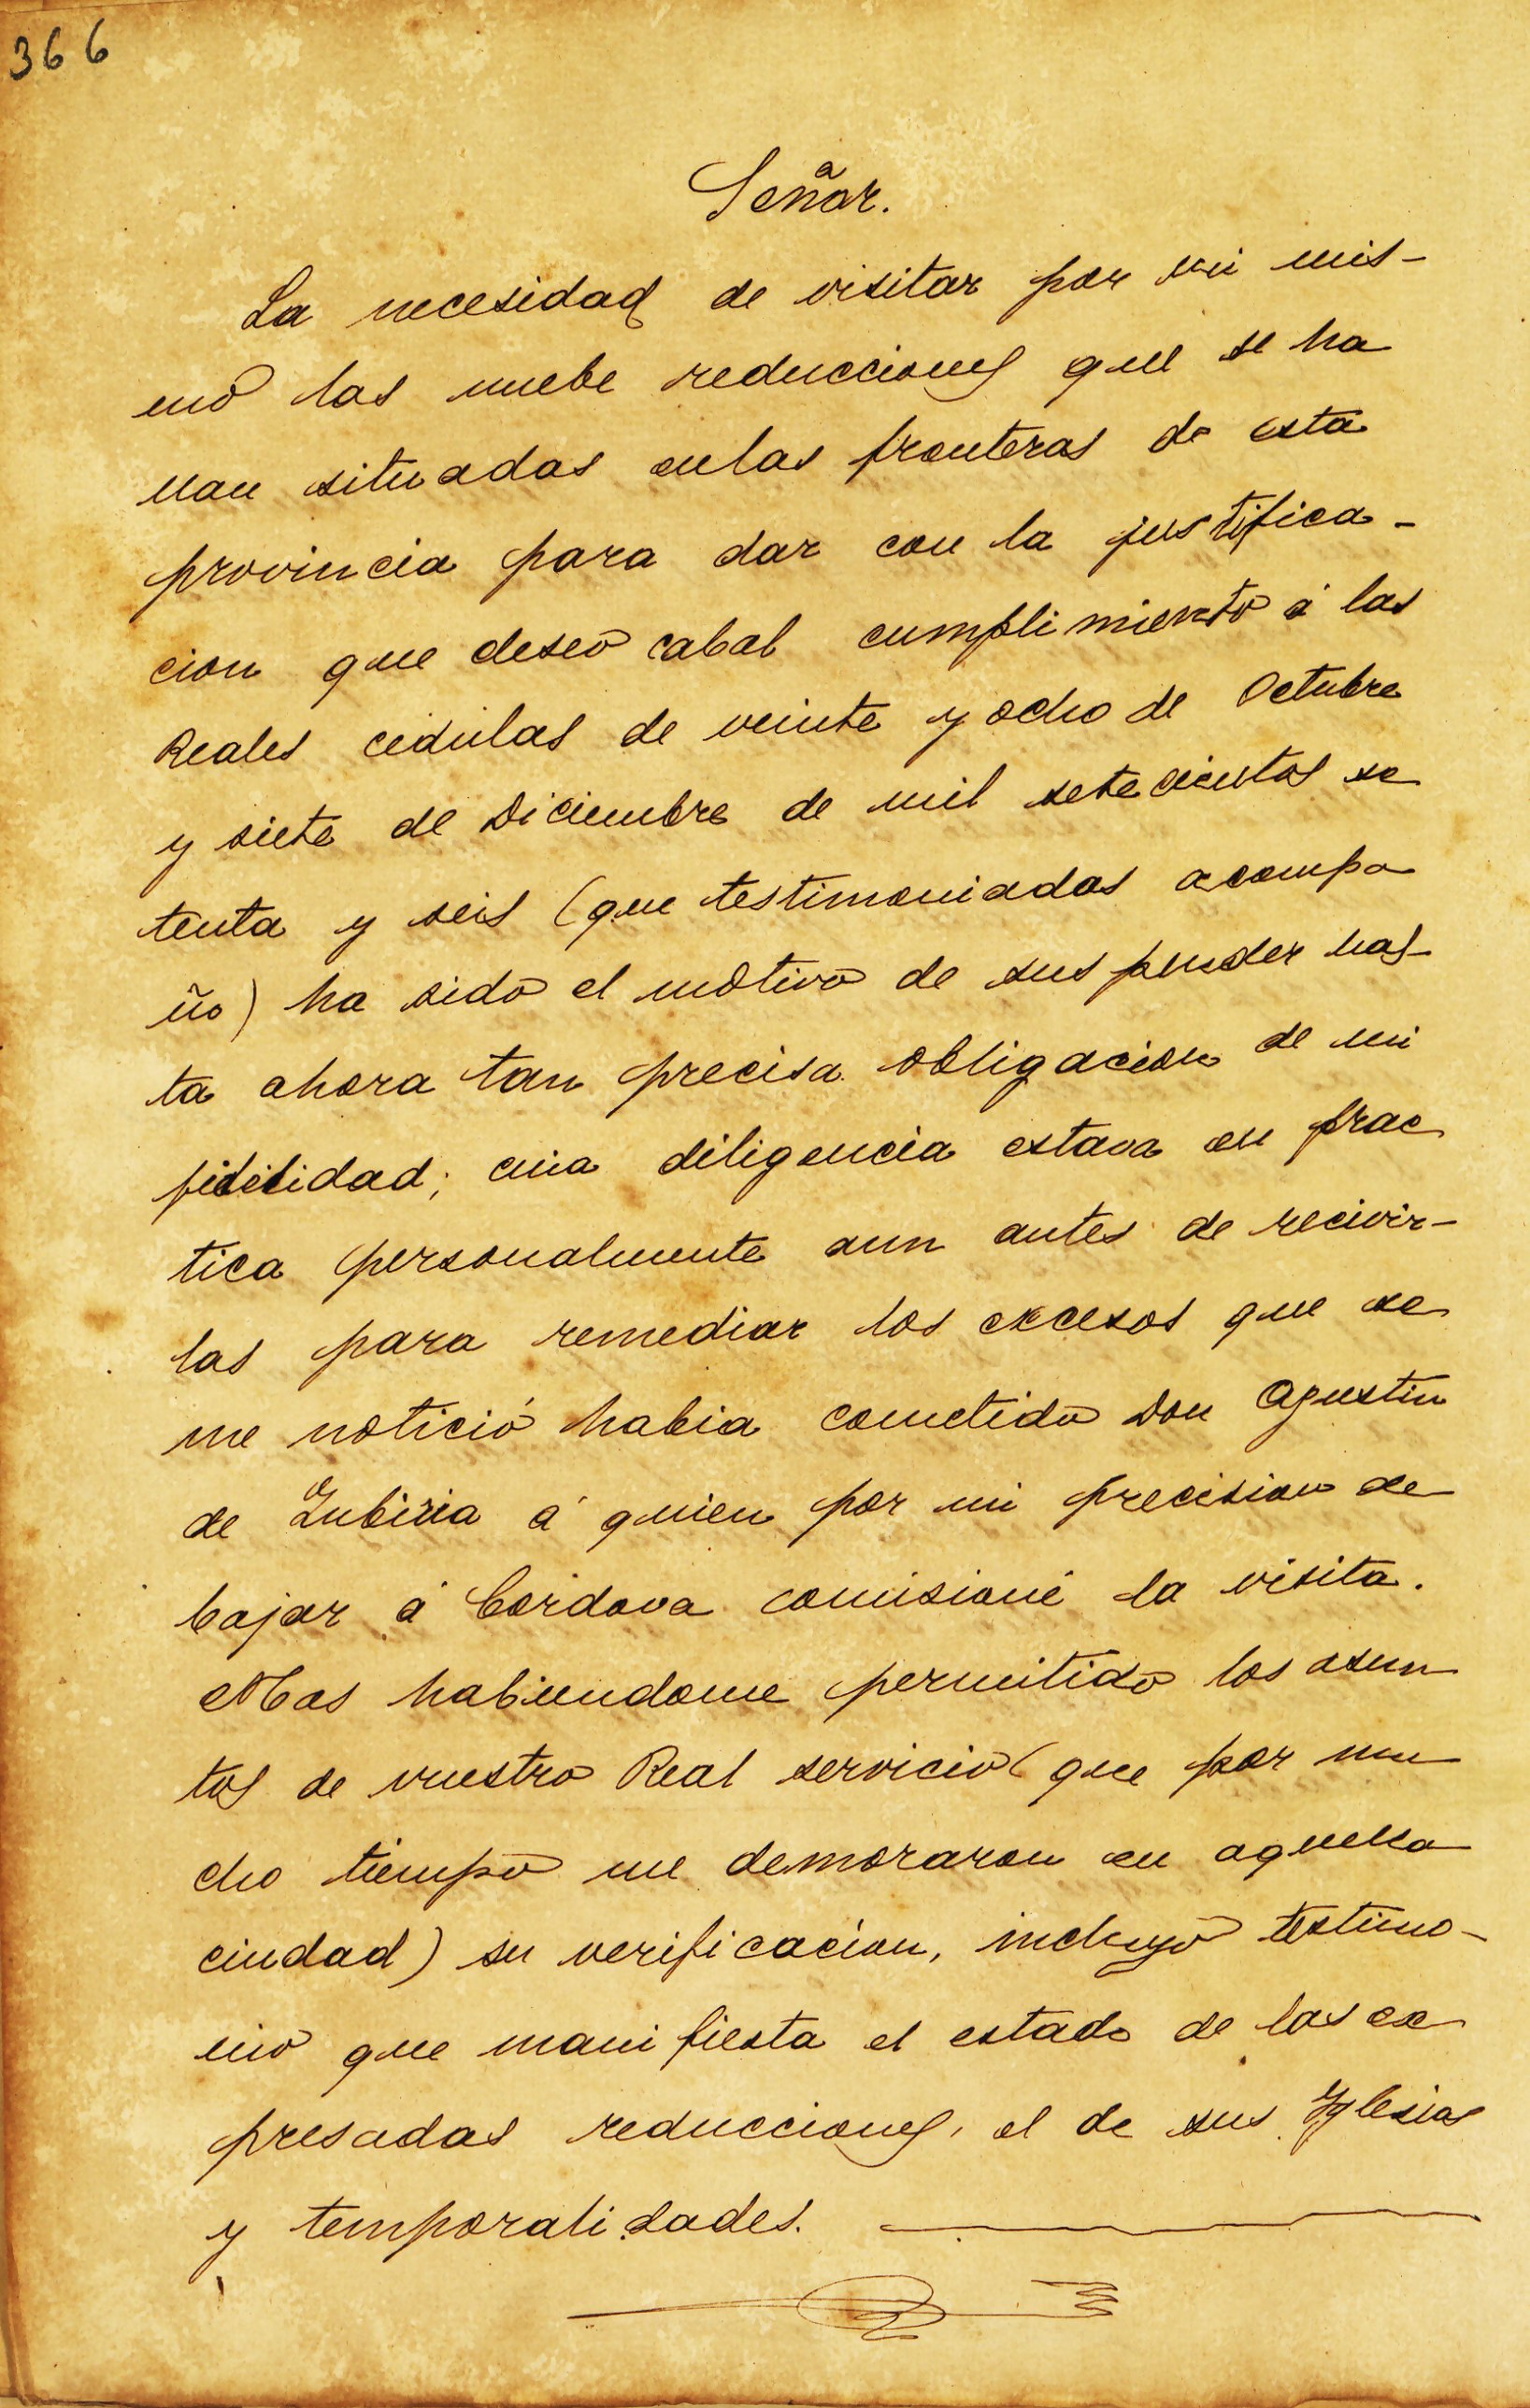 366
Señor.
La necesidad de visitar por mi mis-
mo las nuebe reducciones que se ha
llan situadas enlas fronteras de esta
provincia para dar con la justifica-
cion que deseo cabal cumplimiento á las
Reales cedulas de veinte y ocho de Octubre
y siete de Diciembre de mil setecientos se
tenta y seis (que testimoniadas acompa
ño) ha sido el motivo de suspender has-
ta ahora tan precisa obligacion de mi
fidelidad; cuia diligencia estava en prac
tica personalmente aun antes de recivir-
las para remediar los excesos que se
me notició habia cometido Don Agustin
de Zubiria á quien por mi precision de
bajar á Cordova comisioné la visita.
Mas habiendome permitido los asun
tos de vuestro Real servicio (que por mu
cho tiempo me demoraron en aquella
ciudad) su verificacion, incluyo testimo-
nio que manifiesta el estado de las ex
presadas reducciones, el de sus Yglesias
y temporalidades.